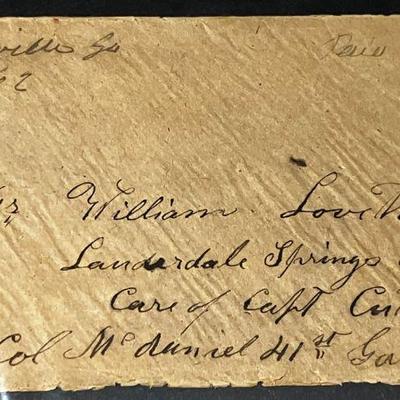 ville Ga Paid
62
Mr William Love
Lauderdale Springs
Care of Capt
Col McDaniel 41st Ga